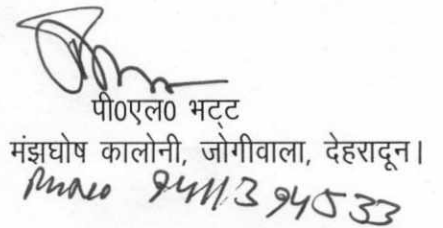 पी0एल0 भट्ट
मंझघोष कालोनी, जोगीवाला, देहरादून।
Phone 9411394533